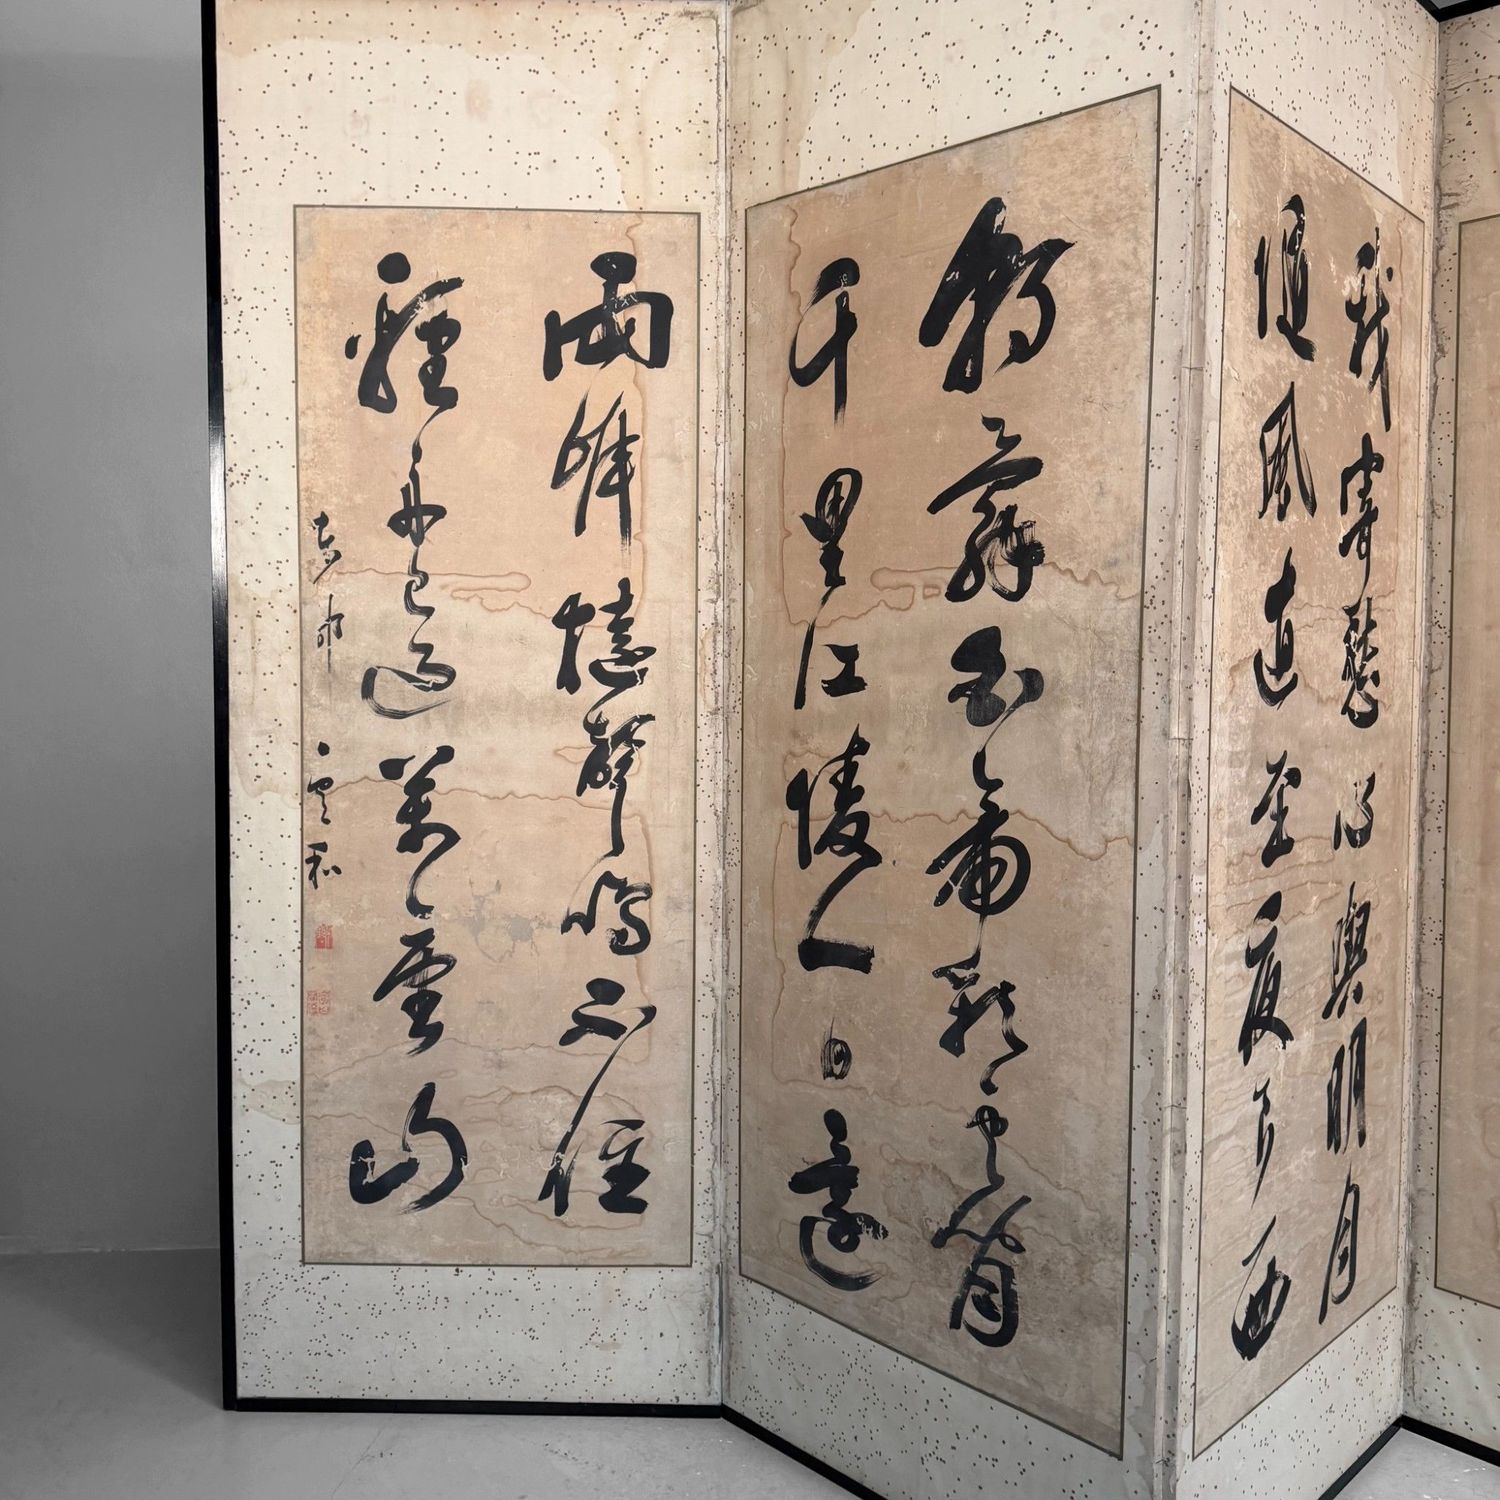 我寄愁心與明月
隨風直到夜郎西
朝辭白帝彩雲間
千里江陵一日還
兩岸猿聲啼不住
輕舟已過萬重山